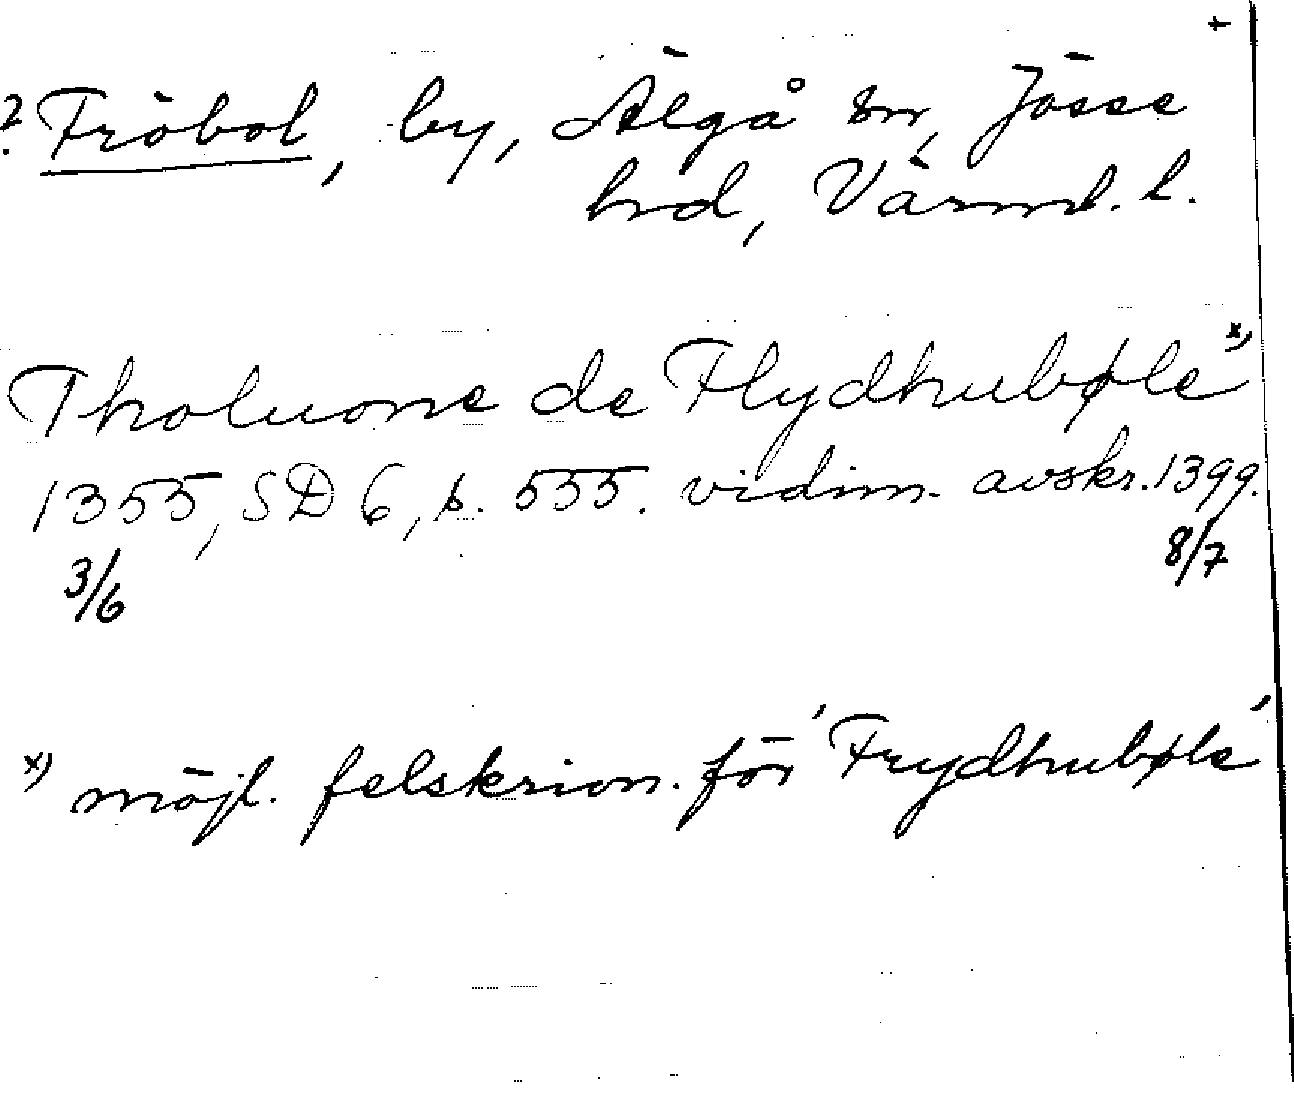 +
? Fröbol, by, Älgå sn, Jösse
hrd, Värml. l.
Tholuone de Flydhubøle x)
1355, SD 6, s. 555. vidim. avskr. 1399.
3/6 8/7
x) möjl. felskrivn. för 'Frydhubøle'